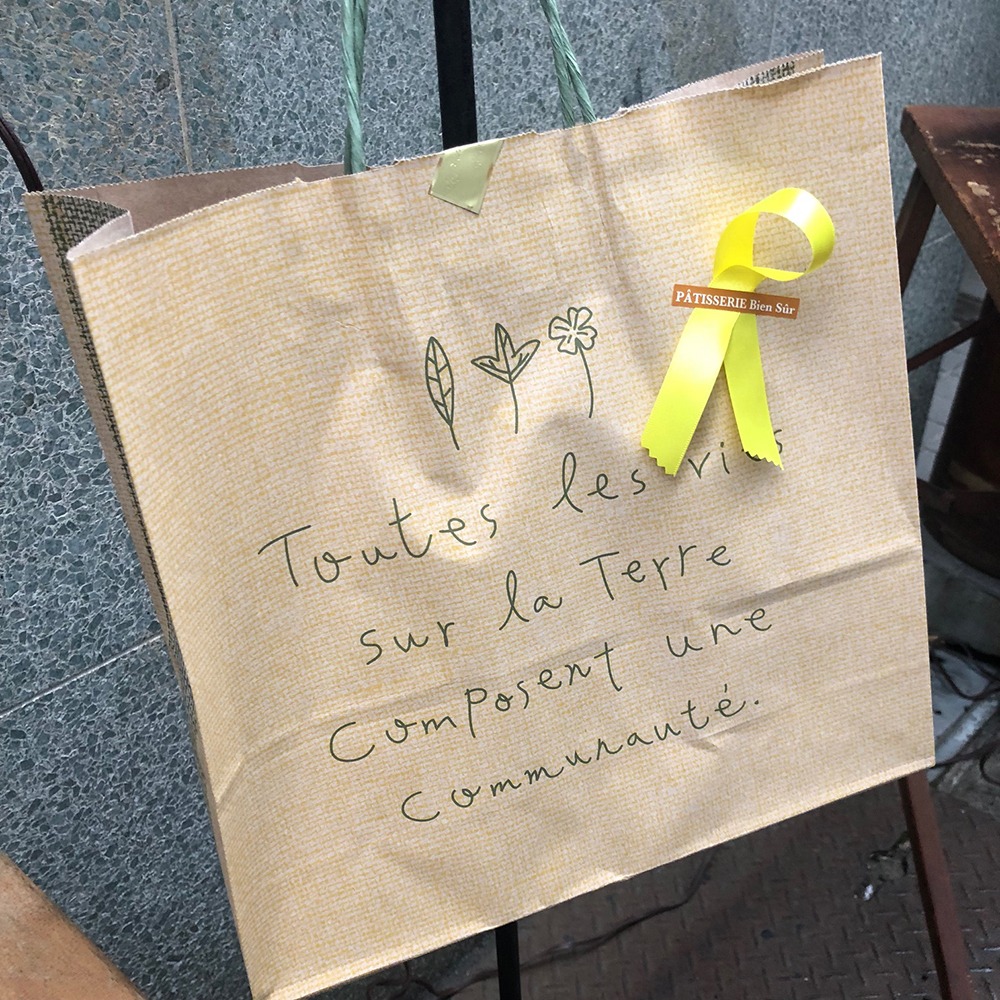 PÂTISSERIE Bien Sûr
Toutes les vies
sur la Terre
composent une
communauté.